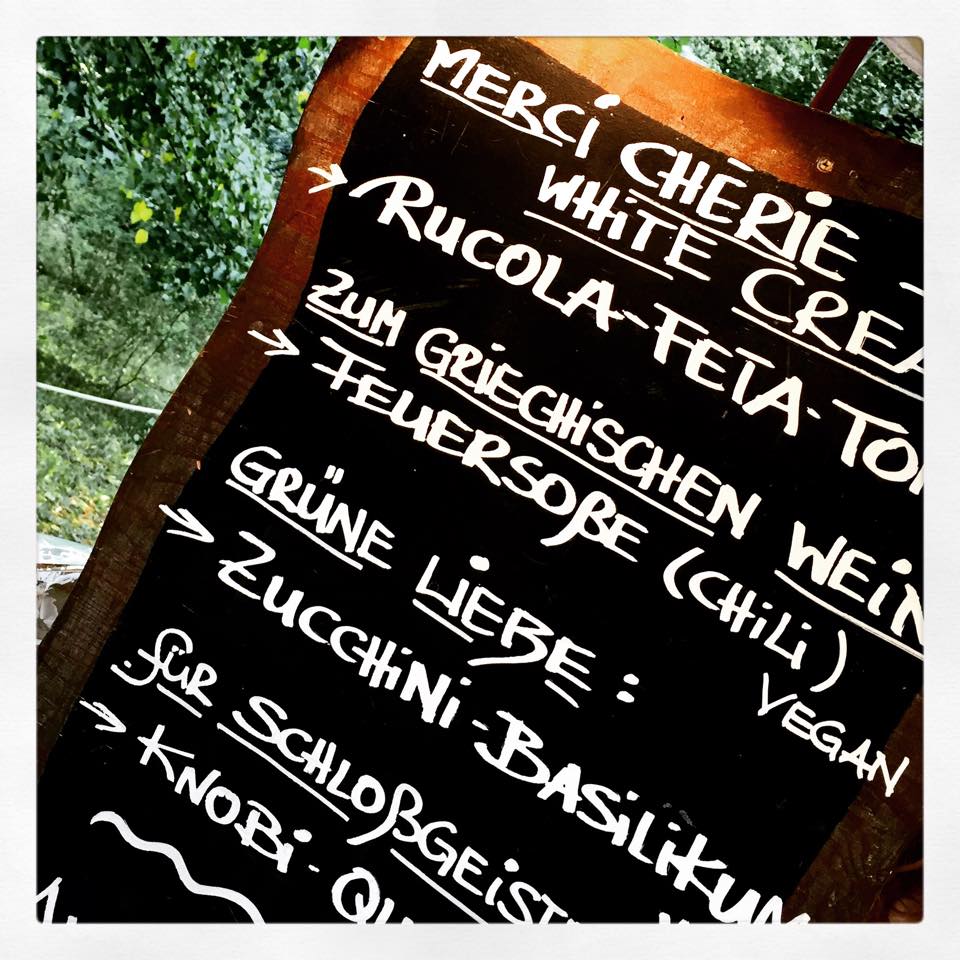 MERCI CHÉRIE
WHITE CREA
RUCOLA-FETA-TO
ZUM GRIECHISCHEN WEIN
FEUERSOßE (CHILI)
VEGAN
GRÜNE LIEBE:
ZUCCHINI-BASILIKUM
für SCHLOßGEIST
KNOBI-QU